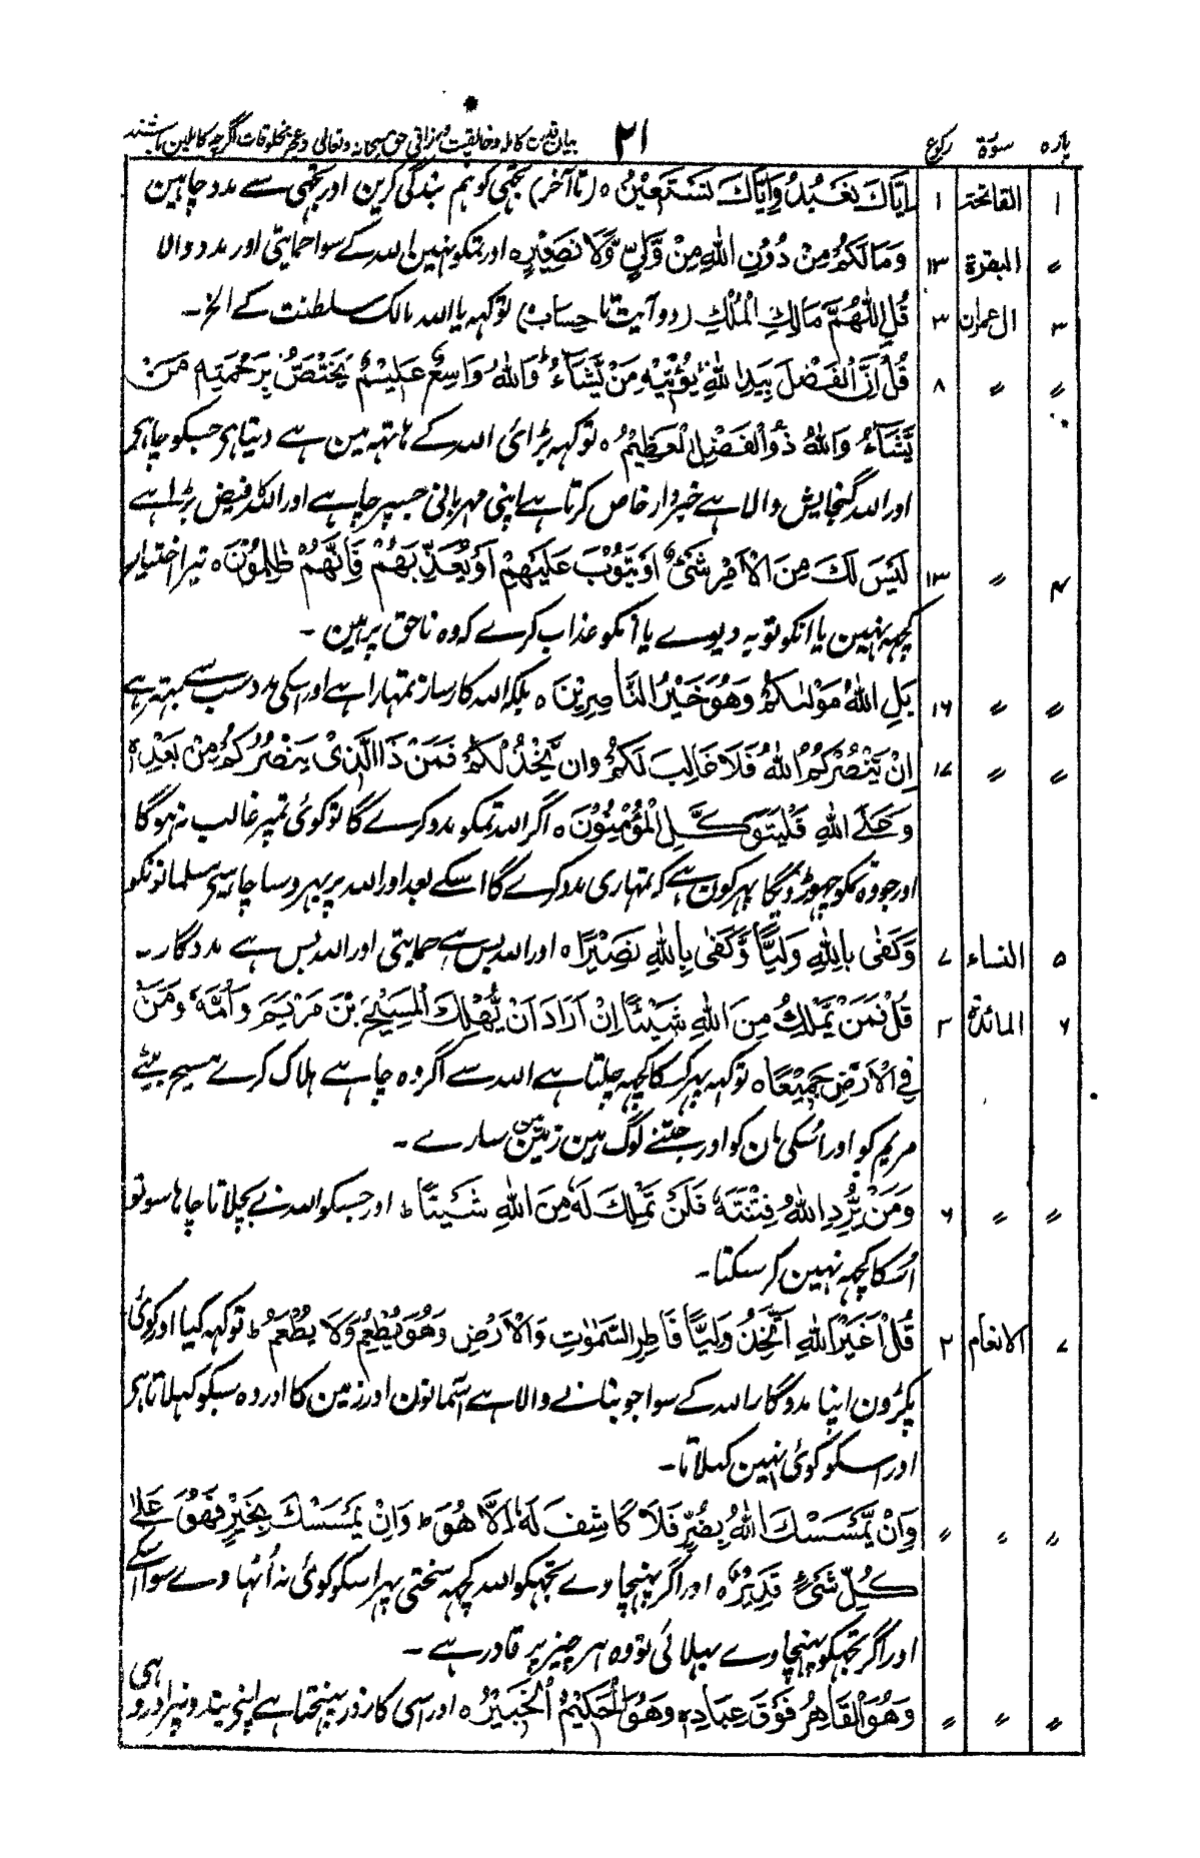 پارہ سورۃ رکوع ۲۱ بیان قدرت کاملہ و خالقیت و رزاقی حق سبحانہ و تعالی و عجز مخلوقات اگرچہ کاملین باشند
۱ الفاتحۃ ۱ اِیَّاكَ نَعْبُدُ وَاِیَّاكَ نَسْتَعِیْنُ ٥ (تا آخر) تجھی کو ہم بندگی کرین اور تجھی سے مدد چاہین
〃 البقرۃ ۱۳ وَمَا لَكُمْ مِنْ دُوْنِ اللّٰهِ مِنْ وَّلِیٍّ وَّلَا نَصِیْرٍ ٥ اور تمکو نہین اللہ کے سوا حمایتی اور مدد والا
۳ ال عمران ۳ قُلِ اللّٰهُمَّ مَالِكَ الْمُلْكِ (دو آیت تا حساب) توکہہ یا اللہ مالک سلطنت کے الخ۔
〃 〃 ۸ قُلْ اِنَّ الْفَضْلَ بِیَدِ اللّٰهِ یُؤْتِیْهِ مَنْ یَّشَآءُ ؕ وَاللّٰهُ وَاسِعٌ عَلِیْمٌ یَّخْتَصُّ بِرَحْمَتِهٖ مَنْ
یَّشَآءُ وَاللّٰهُ ذُو الْفَضْلِ الْعَظِیْمِ ٥ توکہہ بڑائی اللہ کے ہاتہہ مین ہے دیتا ہی جسکو چاہی
اور اللہ گنجایش والا ہے خبردار خاص کرتا ہے اپنی مہربانی جسپر چاہے اور اللہ کا فیض بڑا ہے
۴ 〃 ۱۳ لَیْسَ لَكَ مِنَ الْاَمْرِ شَیْءٌ اَوْ یَتُوْبَ عَلَیْهِمْ اَوْ یُعَذِّبَهُمْ فَاِنَّهُمْ ظٰلِمُوْنَ ٥ تیرا اختیار
کچہہ نہین یا انکو توبہ دیوے یا انکو عذاب کرے کہ وہ ناحق پر ہین ۔
〃 〃 ۱۶ بَلِ اللّٰهُ مَوْلٰىكُمْ وَهُوَ خَیْرُ النَّاصِرِیْنَ ٥ بلکہ اللہ کارساز تمہارا ہے اور اسکی مدد سب سے بہتر ہے
〃 〃 ۱۷ اِنْ یَّنْصُرْكُمُ اللّٰهُ فَلَا غَالِبَ لَكُمْ وَاِنْ یَّخْذُلْكُمْ فَمَنْ ذَا الَّذِیْ یَنْصُرُكُمْ مِنْ بَعْدِهٖ
وَعَلَى اللّٰهِ فَلْیَتَوَكَّلِ الْمُؤْمِنُوْنَ ٥ اگر اللہ تمکو مدد کرے گا تو کوئی تمپر غالب نہ ہوگا
اور جو وہ تمکو چہوڑ دیگا پہر کون ہے کہ تمہاری مدد کرے گا اسکے بعد اور اللہ پر بہروسا چاہیے مسلمانونکو
۵ النساء ۷ وَكَفٰى بِاللّٰهِ وَلِیًّا وَّكَفٰى بِاللّٰهِ نَصِیْرًا ٥ اور اللہ بس ہے حمایتی اور اللہ بس ہے مددگار ۔
۶ المائدۃ ۳ قُلْ فَمَنْ یَّمْلِكُ مِنَ اللّٰهِ شَیْئًا اِنْ اَرَادَ اَنْ یُّهْلِكَ الْمَسِیْحَ بْنَ مَرْیَمَ وَاُمَّهٗ وَمَنْ
فِی الْاَرْضِ جَمِیْعًا ٥ توکہہ پہر کسکا کچہہ چلتا ہے اللہ سے اگر وہ چاہے ہلاک کرے مسیح بیٹے
مریم کو اور اسکی مان کو اور جتنے لوگ ہین زمین مین سارے ۔
〃 〃 ۶ وَمَنْ یُّرِدِ اللّٰهُ فِتْنَتَهٗ فَلَنْ تَمْلِكَ لَهٗ مِنَ اللّٰهِ شَیْئًا ؕ اور جسکو اللہ نے بچلانا چاہا سو تو
اسکا کچہہ نہین کر سکتا ۔
۷ الانعام ۲ قُلْ اَغَیْرَ اللّٰهِ اَتَّخِذُ وَلِیًّا فَاطِرِ السَّمٰوٰتِ وَالْاَرْضِ وَهُوَ یُطْعِمُ وَلَا یُطْعَمُ ؕ توکہہ کیا اور کوئی
پکڑون اپنا مددگار اللہ کے سوا جو بنانے والا ہے آسمانون اور زمین کا اور وہ سبکو کہلاتا ہی
اور اسکو کوئی نہین کہلاتا ۔
〃 〃 〃 وَاِنْ یَّمْسَسْكَ اللّٰهُ بِضُرٍّ فَلَا كَاشِفَ لَهٗ اِلَّا هُوَ ؕ وَاِنْ یَّمْسَسْكَ بِخَیْرٍ فَهُوَ عَلٰى
كُلِّ شَیْءٍ قَدِیْرٌ ٥ اور اگر پہنچاوے تجہکو اللہ کچہہ سختی پہر اسکو کوئی نہ اٹہاوے سوا اسکے
اور اگر تجہکو پہنچاوے بہلائی تو وہ ہر چیز پر قادر ہے ۔
〃 〃 〃 وَهُوَ الْقَاهِرُ فَوْقَ عِبَادِهٖ وَهُوَ الْحَكِیْمُ الْخَبِیْرُ ٥ اور اسی کا زور پہنچتا ہے اپنے بندونپر اور وہی